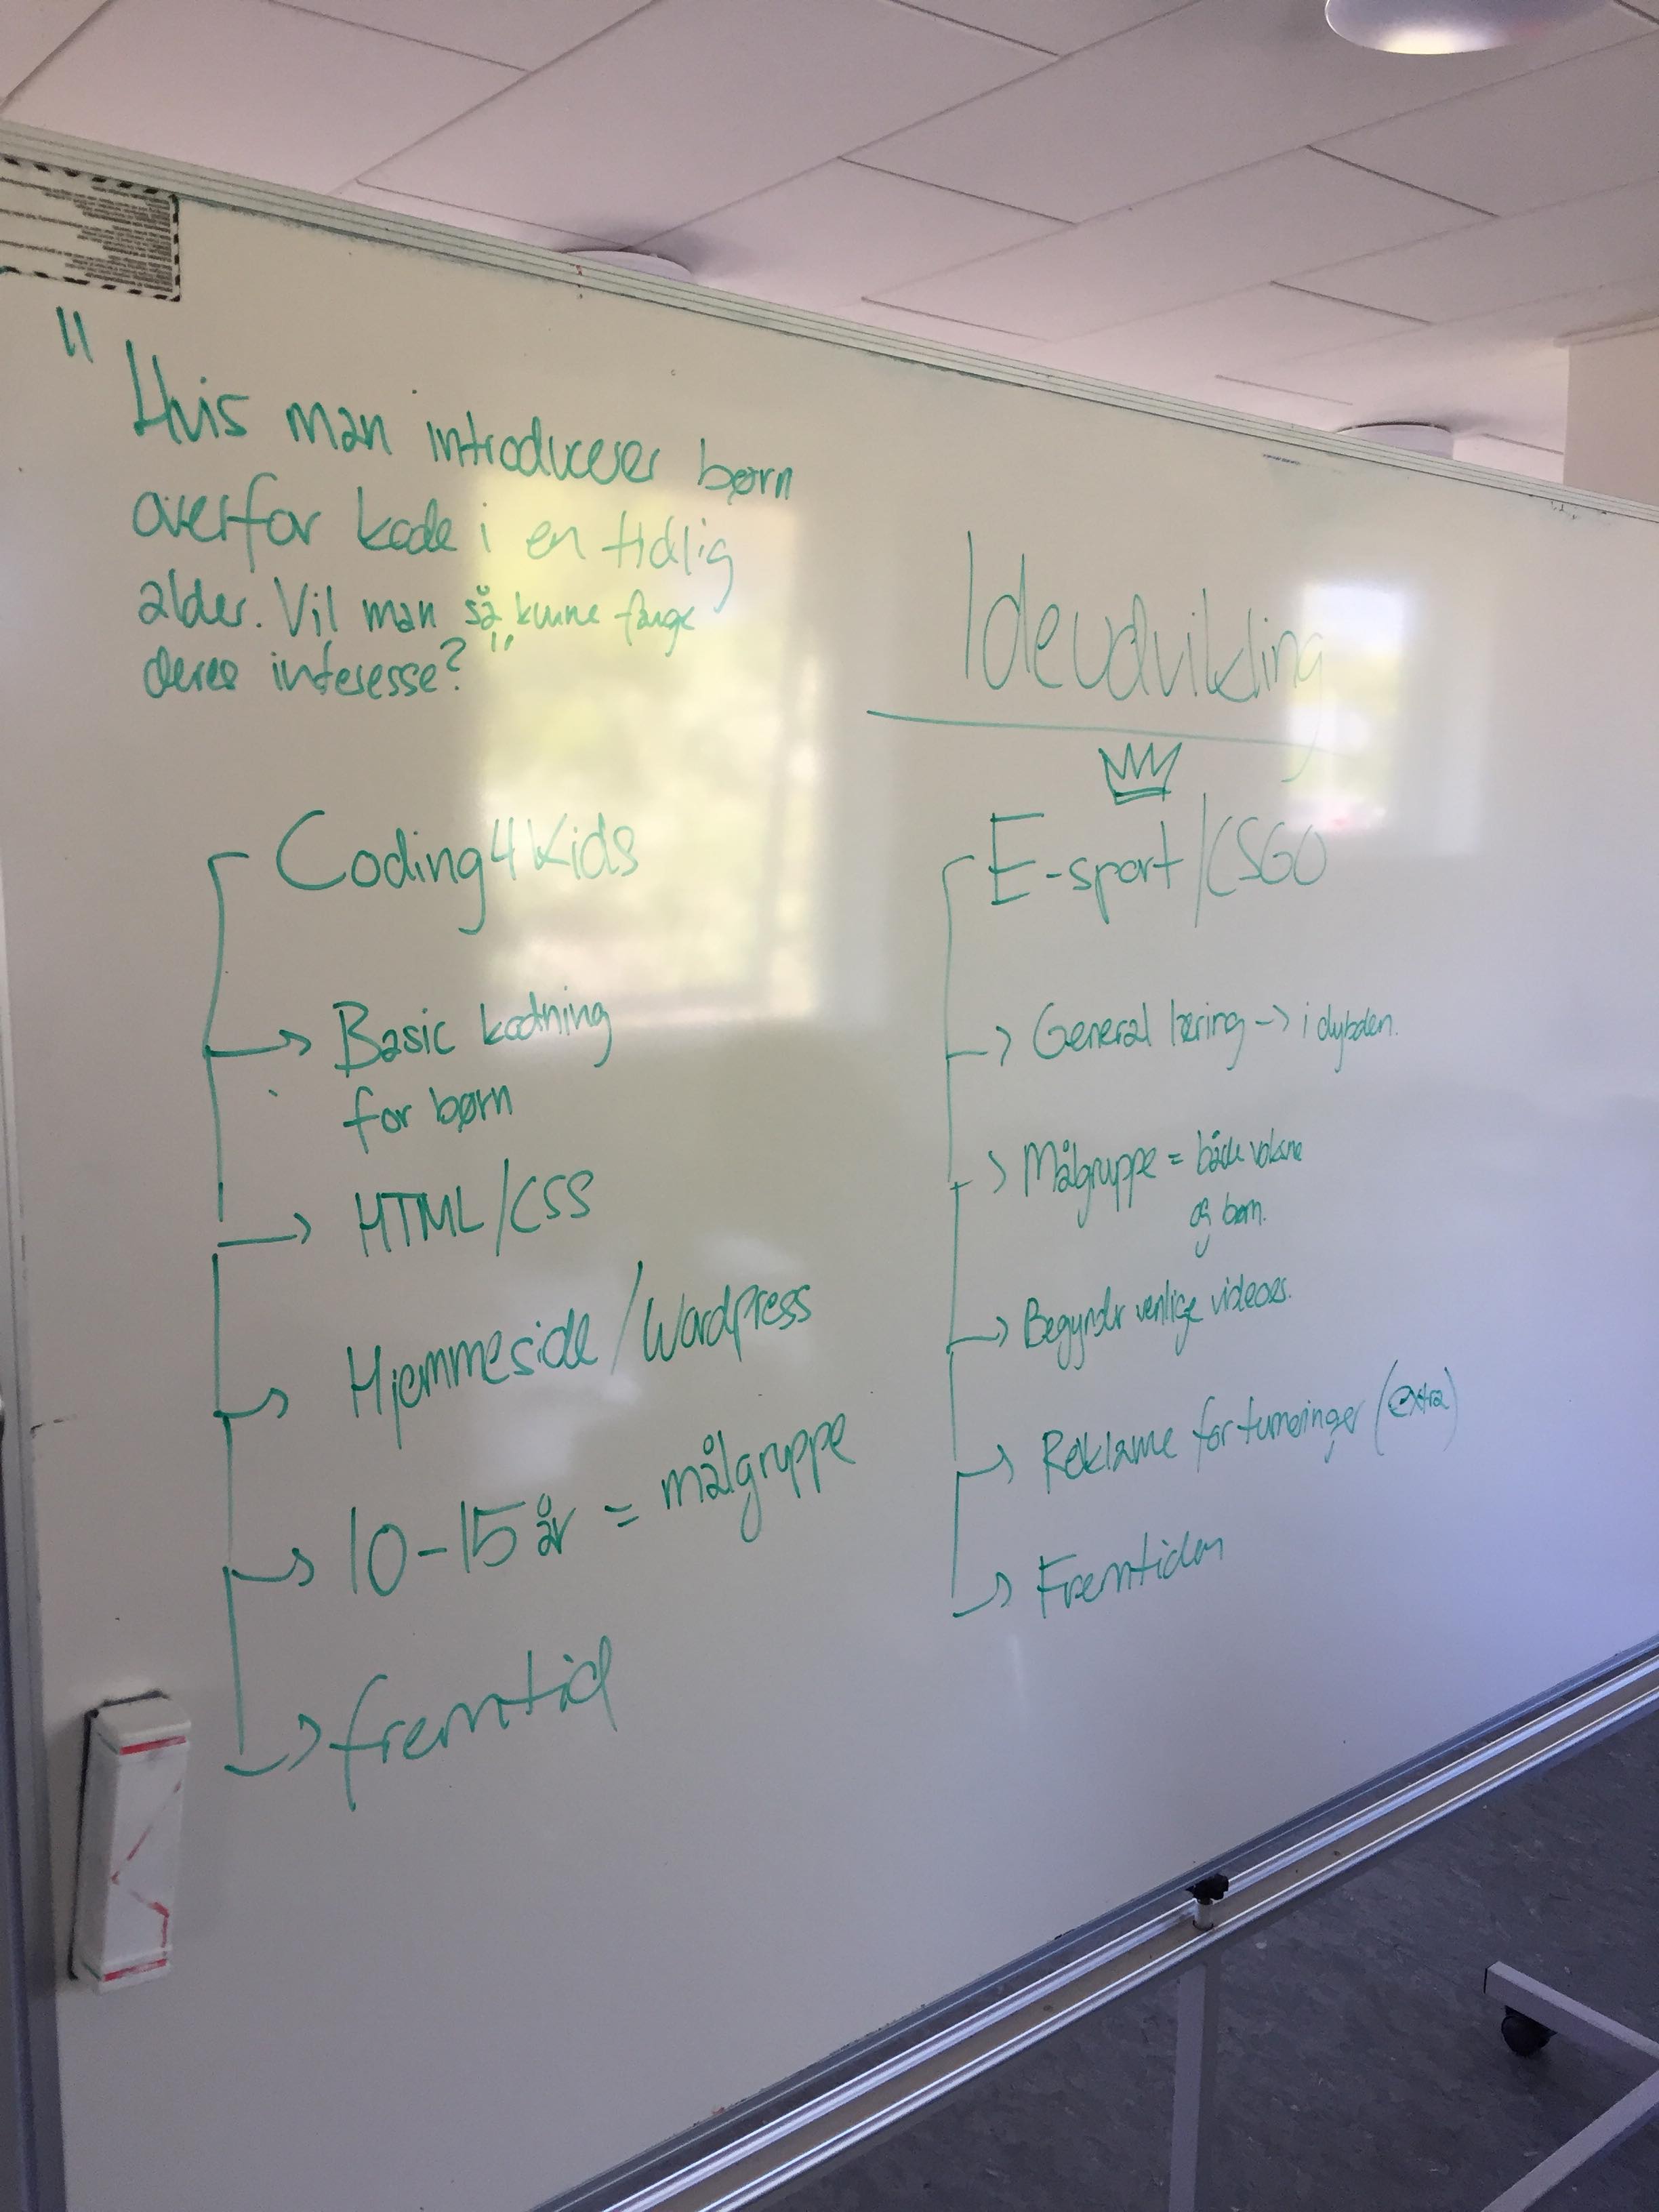 "Hvis man introducerer børn
overfor kode i en tidlig
alder. Vil man så kunne fange
deres interesse?"
Ideudvikling
Coding4Kids
Basic kodning
for børn
HTML/CSS
Hjemmeside/Wordpress
10-15 år = målgruppe
fremtid
E-sport/CSGO
General læring -> i dybden.
Målgruppe = både voksne
og børn.
Begynder venlige videoer.
Reklame for turneringer (extra)
Fremtiden